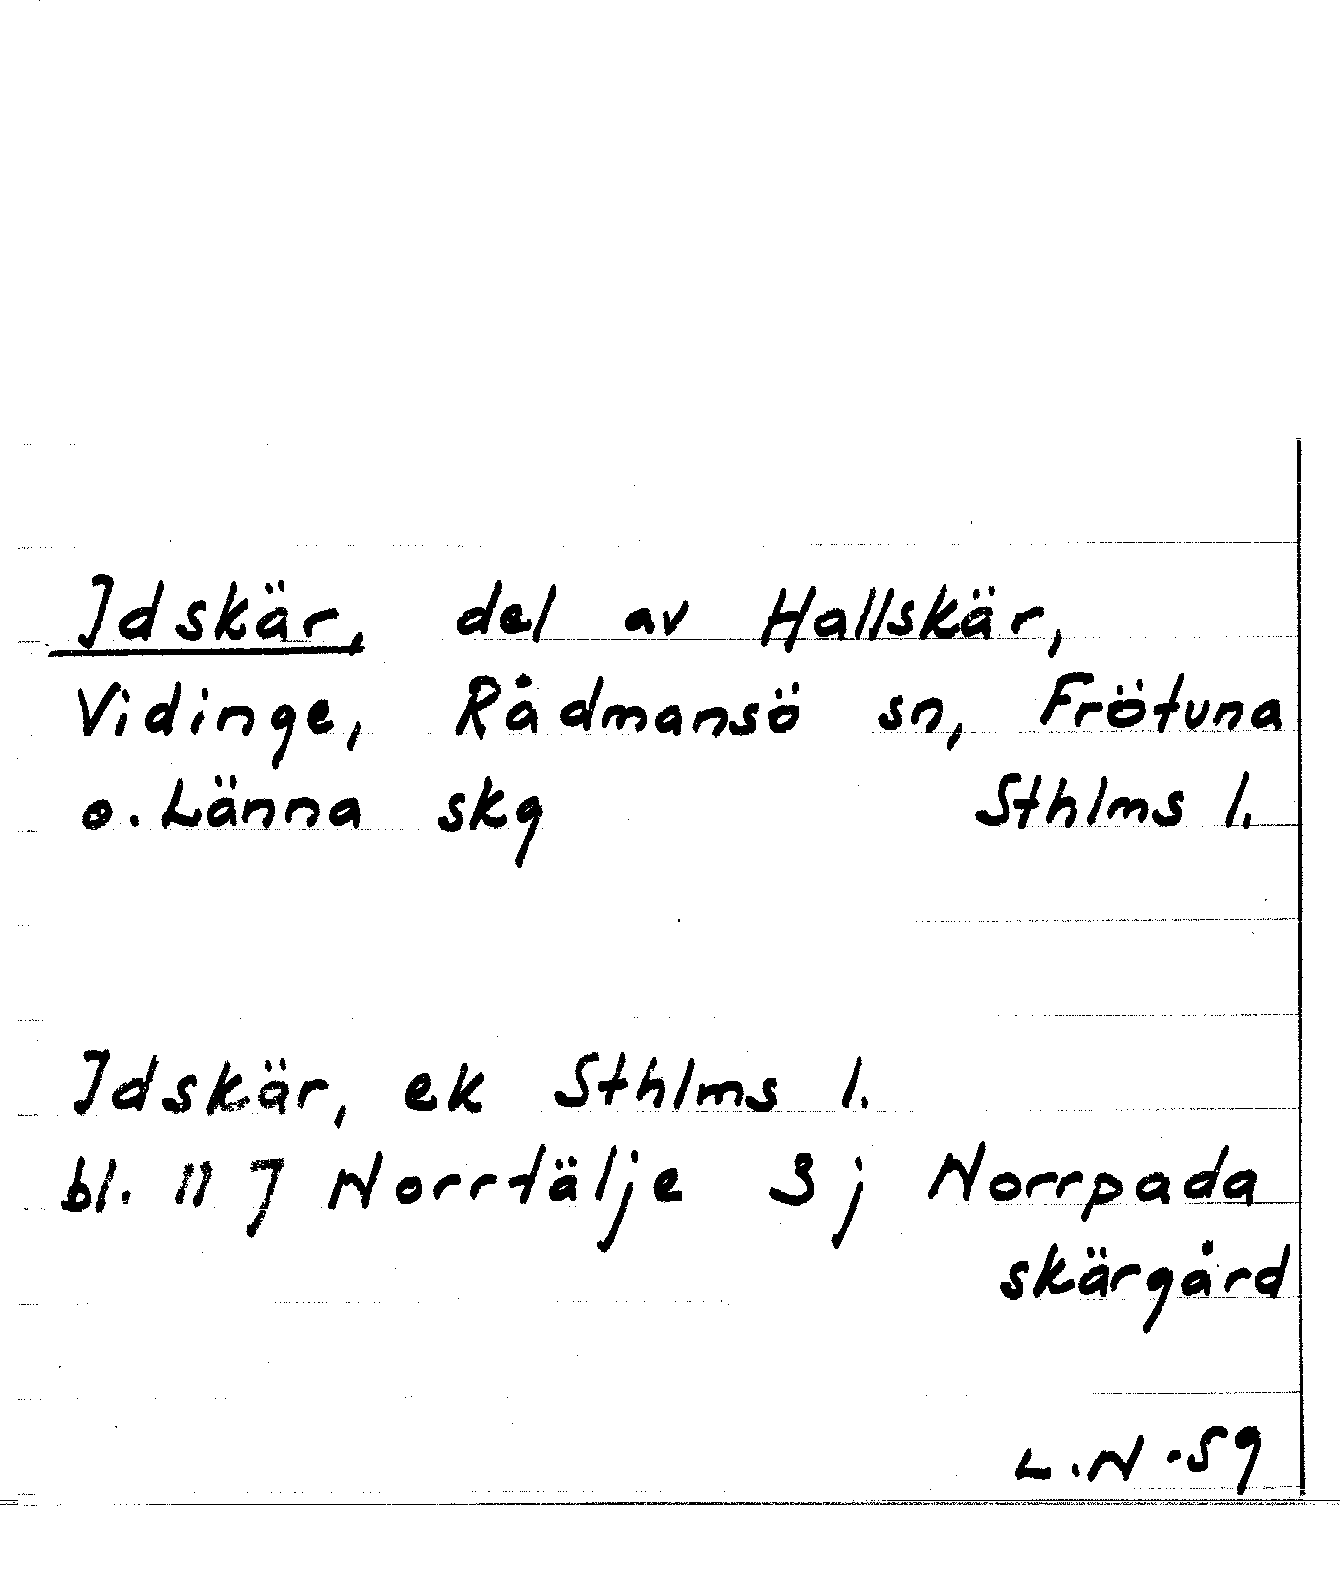 Idskär, del av Hallskär,
Vidinge, Rådmansö sn, Frötuna
o. Länna skg Sthlms l.
Idskär, ek Sthlms l.
bl. 11 J Norrtälje 3 j Norrpada
skärgård
L.N -59